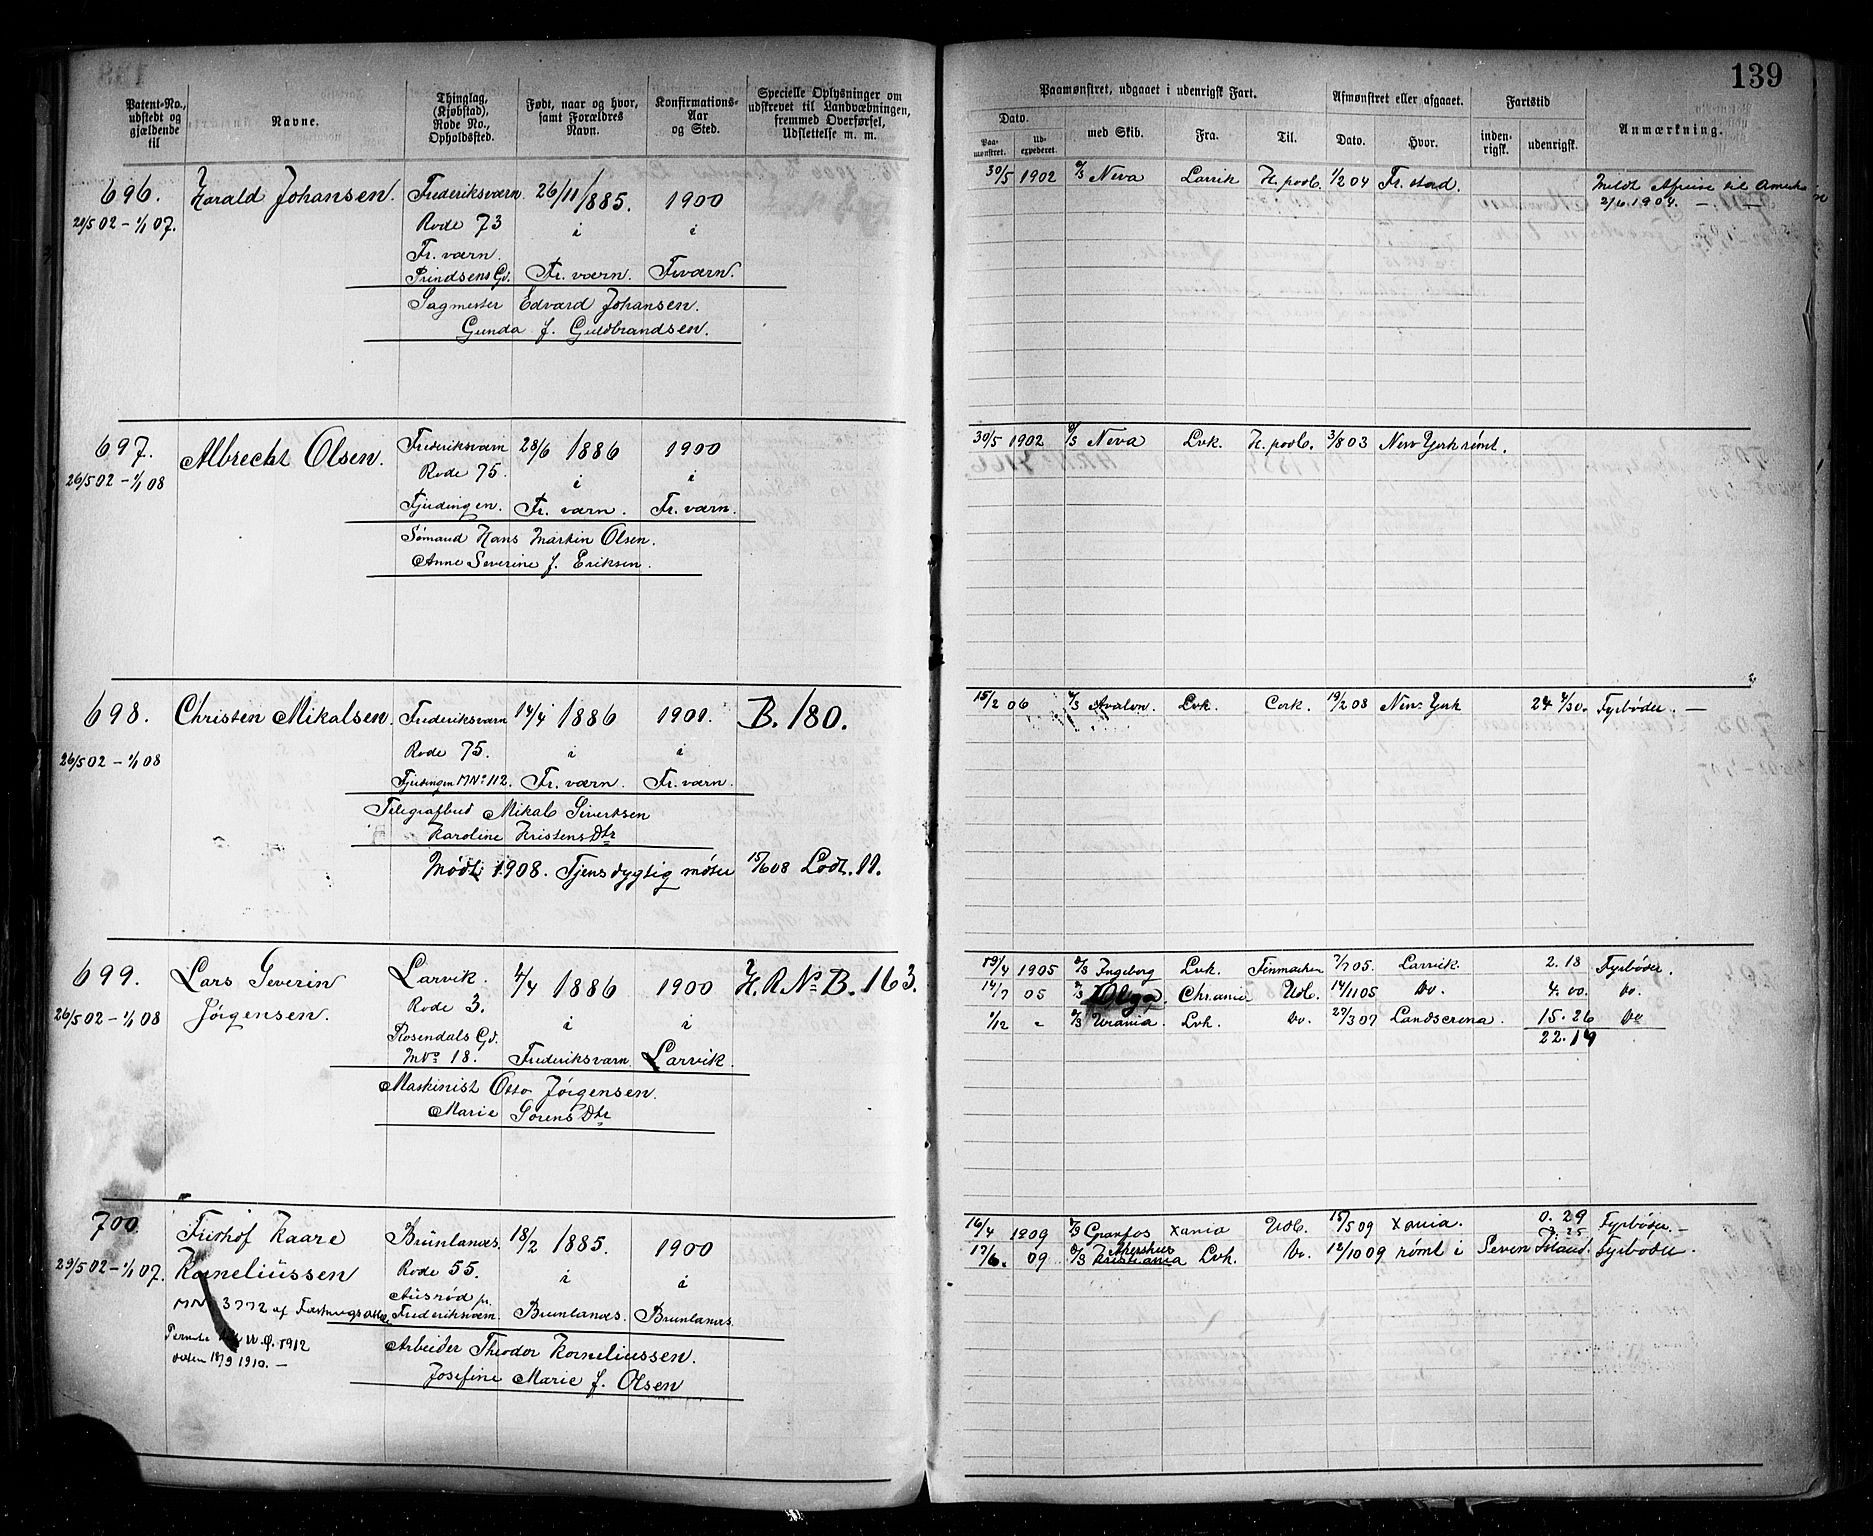 139
Patent-No., udstedt og gjældende til
Navne.
Thinglag, (Kjøbstad), Rode No., Opholdssted.
Født, naar og hvor, samt Forældres Navn.
Konfirmations-Aar og Sted.
Specielle Oplysninger om udskrevet til Landvæbningen, fremmed Overførsel, Udslettelse m. m.
Paamønstret, udgaaet i udenrigsk Fart.
Afmønstret eller afgaaet.
Fartstid
Anmærkning.
Dato.
Paa-mønstret.
Ud-expederet.
med Skib.
Fra.
Til.
Dato.
Hvor.
inden-rigsk.
udenrigsk.
696. Harald Johansen. Frederiksværn 26/11 1885. 1900
30/5 1902 S/S Neva Larvik H.pool. 1/2 04 Fr.stad. Meldt Afreise til Amerika
2/6.1904. — —
26/5 02 – 1/1 07. Rode 73 i i
Fr. værn.
Prindsens Gd. Fr. værn. Fr.værn.
Sagmester Edvard Johansen.
Gunda f. Guldbrandsen.
697. Albrecht Olsen. Frederiksværn 28/6 1886 1900
30/5 1902 S/S Neva Lvk. H.pool. 3/8 03 New York rømt.
26/5 02 – 1/1 08 Rode 75. i i
Tjudingen. Fr. værn. Fr. værn.
Sømand Hans Martin Olsen.
Anne Severine f. Eriksen.
698. Christen Mikalsen. Frederiksværn 14/4 1886 1901. B. 180.
15/2 06 S/S Avalon. Lvk. Cork. 19/2 08 New York 24 4/30. Fyrbøder. —
26/5 02 – 1/1 08 Rode 75. i i
Tjudingen MNo 112. Fr. værn. Fr. værn.
Telegrafbud Mikal Sivertsen
Karoline KristensDtr
Mødt 1908. Tjensdygtig møter 15/6 08 Lodt. 11.
699. Lars Severin Larvik. 4/4 1886 1900 H. R No B. 163.
19/4 1905 S/S Ingeborg Lvk. Finmarken 7/7 05. Larvik. 2. 18 Fyrbøder.
14/7 05 S/S Olga. Chr.ania Udl. 14/11 05 Do. 4. 00. Do.
1/12 " S/S Urania. Lvk. Do. 27/3 07 Landscrona. 15. 26 Do
22. 14
26/5 02 – 1/1 08 Jørgensen. Rode 3. i i
Rosendals Gd.
MNo 18. Frederiksværn. Larvik.
Maskinist Otto Jørgensen.
Marie SørensDtr
700. Fridhof Kaare Brunlanæs. 18/2 1885. 1900
16/4 1909 S/S Granfos Xania Udl. 15/5 09 Xania. 0. 29 Fyrbøder. —
17/6. 09 S/S Akershus Kristiania Lvk. Do. 12/10 09 rømt i Seven Island. Fyrbøder.
29/5 02 – 1/1 07. Korneliussen Rode 55. i i
Ausrød pr.
MNo 3772 af Frederiksværn. Brunlanæs. Brunlanæs.
1912
18/9 1910. —
Arbeider Theodor Korneliussen.
Josefine Marie f. Olsen